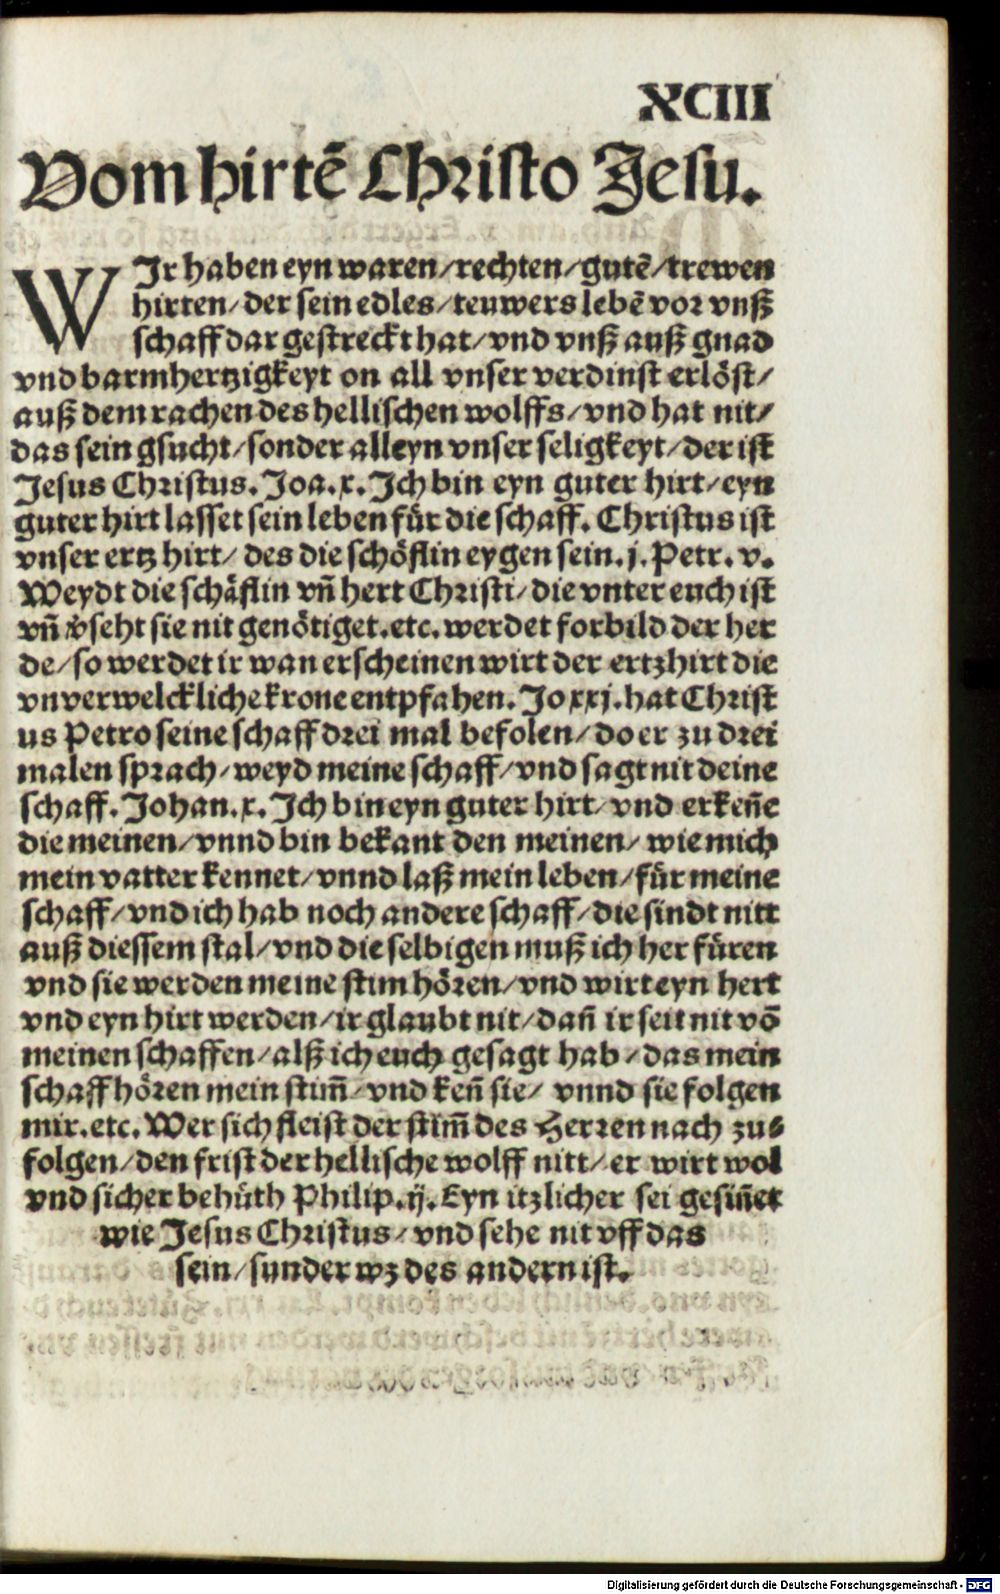 XCIII
Vom hirtē Christo Jesu.
WJr haben eyn waren/rechten/gutē/trewen
hirten/der sein edles/teuwers lebē vor vnß
schaff dar gestreckt hat/vnd vnß auß gnad
vnd barmhertzigkeyt on all vnser verdinst erlöst/
auß dem rachen des hellischen wolffs/vnd hat nit/
das sein gsucht/sonder alleyn vnser seligkeyt/der ist
Jesus Christus. Joa.x. Jch bin eyn guter hirt/eyn
guter hirt lasset sein leben für die schaff. Christus ist
vnser ertz hirt/ des die schöflin eygen sein. j. Petr. v.
Weydt die schäflin vñ hert Christi/die vnter euch ist
vñ v̄seht sie nit genötiget.etc. werdet forbild der her
de/so werdet ir wan erscheinen wirt der ertzhirt die
vnverwelckliche krone entpfahen. Jo xxj. hat Christ
us Petro seine schaff drei mal befolen/do er zu drei
malen sprach/weyd meine schaff/vnd sagt nit deine
schaff. Johan.x. Jch bin eyn guter hirt/vnd erkeñe
die meinen/vnnd bin bekant den meinen/ wie mich
mein vatter kennet/vnnd laß mein leben/für meine
schaff/vnd ich hab noch andere schaff/die sindt nitt
auß diessem stal/vnd die selbigen muß ich her füren
vnd sie werden meine stim hören/vnd wirt eyn hert
vnd eyn hirt werden/ir glaubt nit/dañ ir seit nit vō
meinen schaffen/alß ich euch gesagt hab/das mein
schaff hören mein stim̄/vnd keñ sie/ vnnd sie folgen
mir.etc. Wer sich fleist der stim̄ des Herren nach zu⸗
folgen/den frist der hellische wolff nitt/er wirt wol
vnd sicher behüth Philip.ij. Eyn itzlicher sei gesiñet
wie Jesus Christus/vnd sehe nit vff das
sein/sunder wz des andern ist.
Digitalisierung gefördert durch die Deutsche Forschungsgemeinschaft - DFG